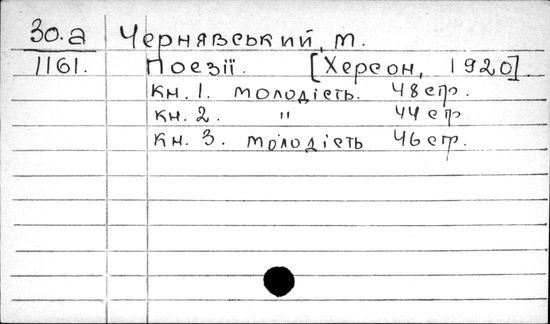 30.а Чернявський, М.
1161. Поезії. [Херсон, 1920].
кн. 1. молодість. 48 стр.
кн. 2. " 44 стр
кн. 3. молодість 46 стр.